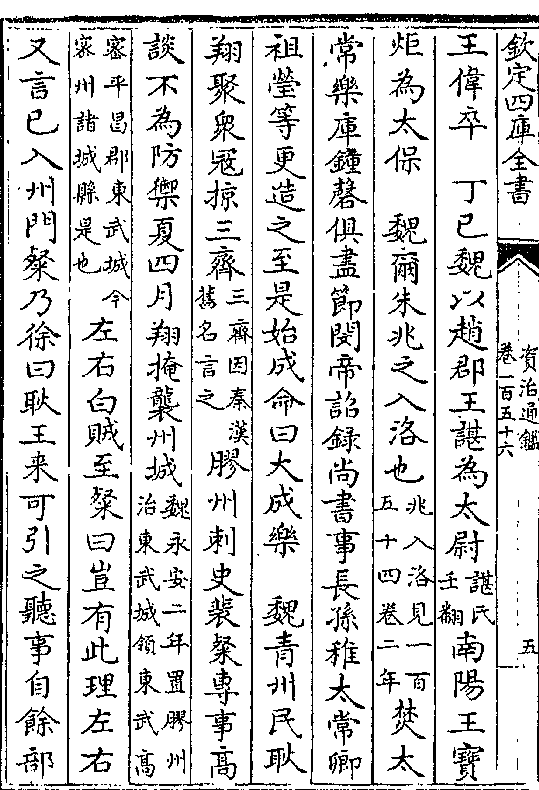 欽定四庫全書
資治通鑑
卷一百五十六
五
王偉卒　丁巳魏以趙郡王諶為太尉諶氏壬翻南陽王寶
炬為太保　魏爾朱兆之入洛也兆入洛見一百五十四卷二年焚太
常樂庫鐘磬俱盡節閔帝詔錄尚書事長孫稚太常卿
祖瑩等更造之至是始成命曰大成樂　魏青州民耿
翔聚衆冦掠三齊三齊因秦漢舊名言之膠州刺史裴粲專事高
談不為防禦夏四月翔掩襲州城魏永安二年置膠州治東武城領東武高
宻平昌郡東武城今宻州諸城縣是也左右白賊至粲曰豈有此理左右
又言已入州門粲乃徐曰耿王来可引之聽事自餘部